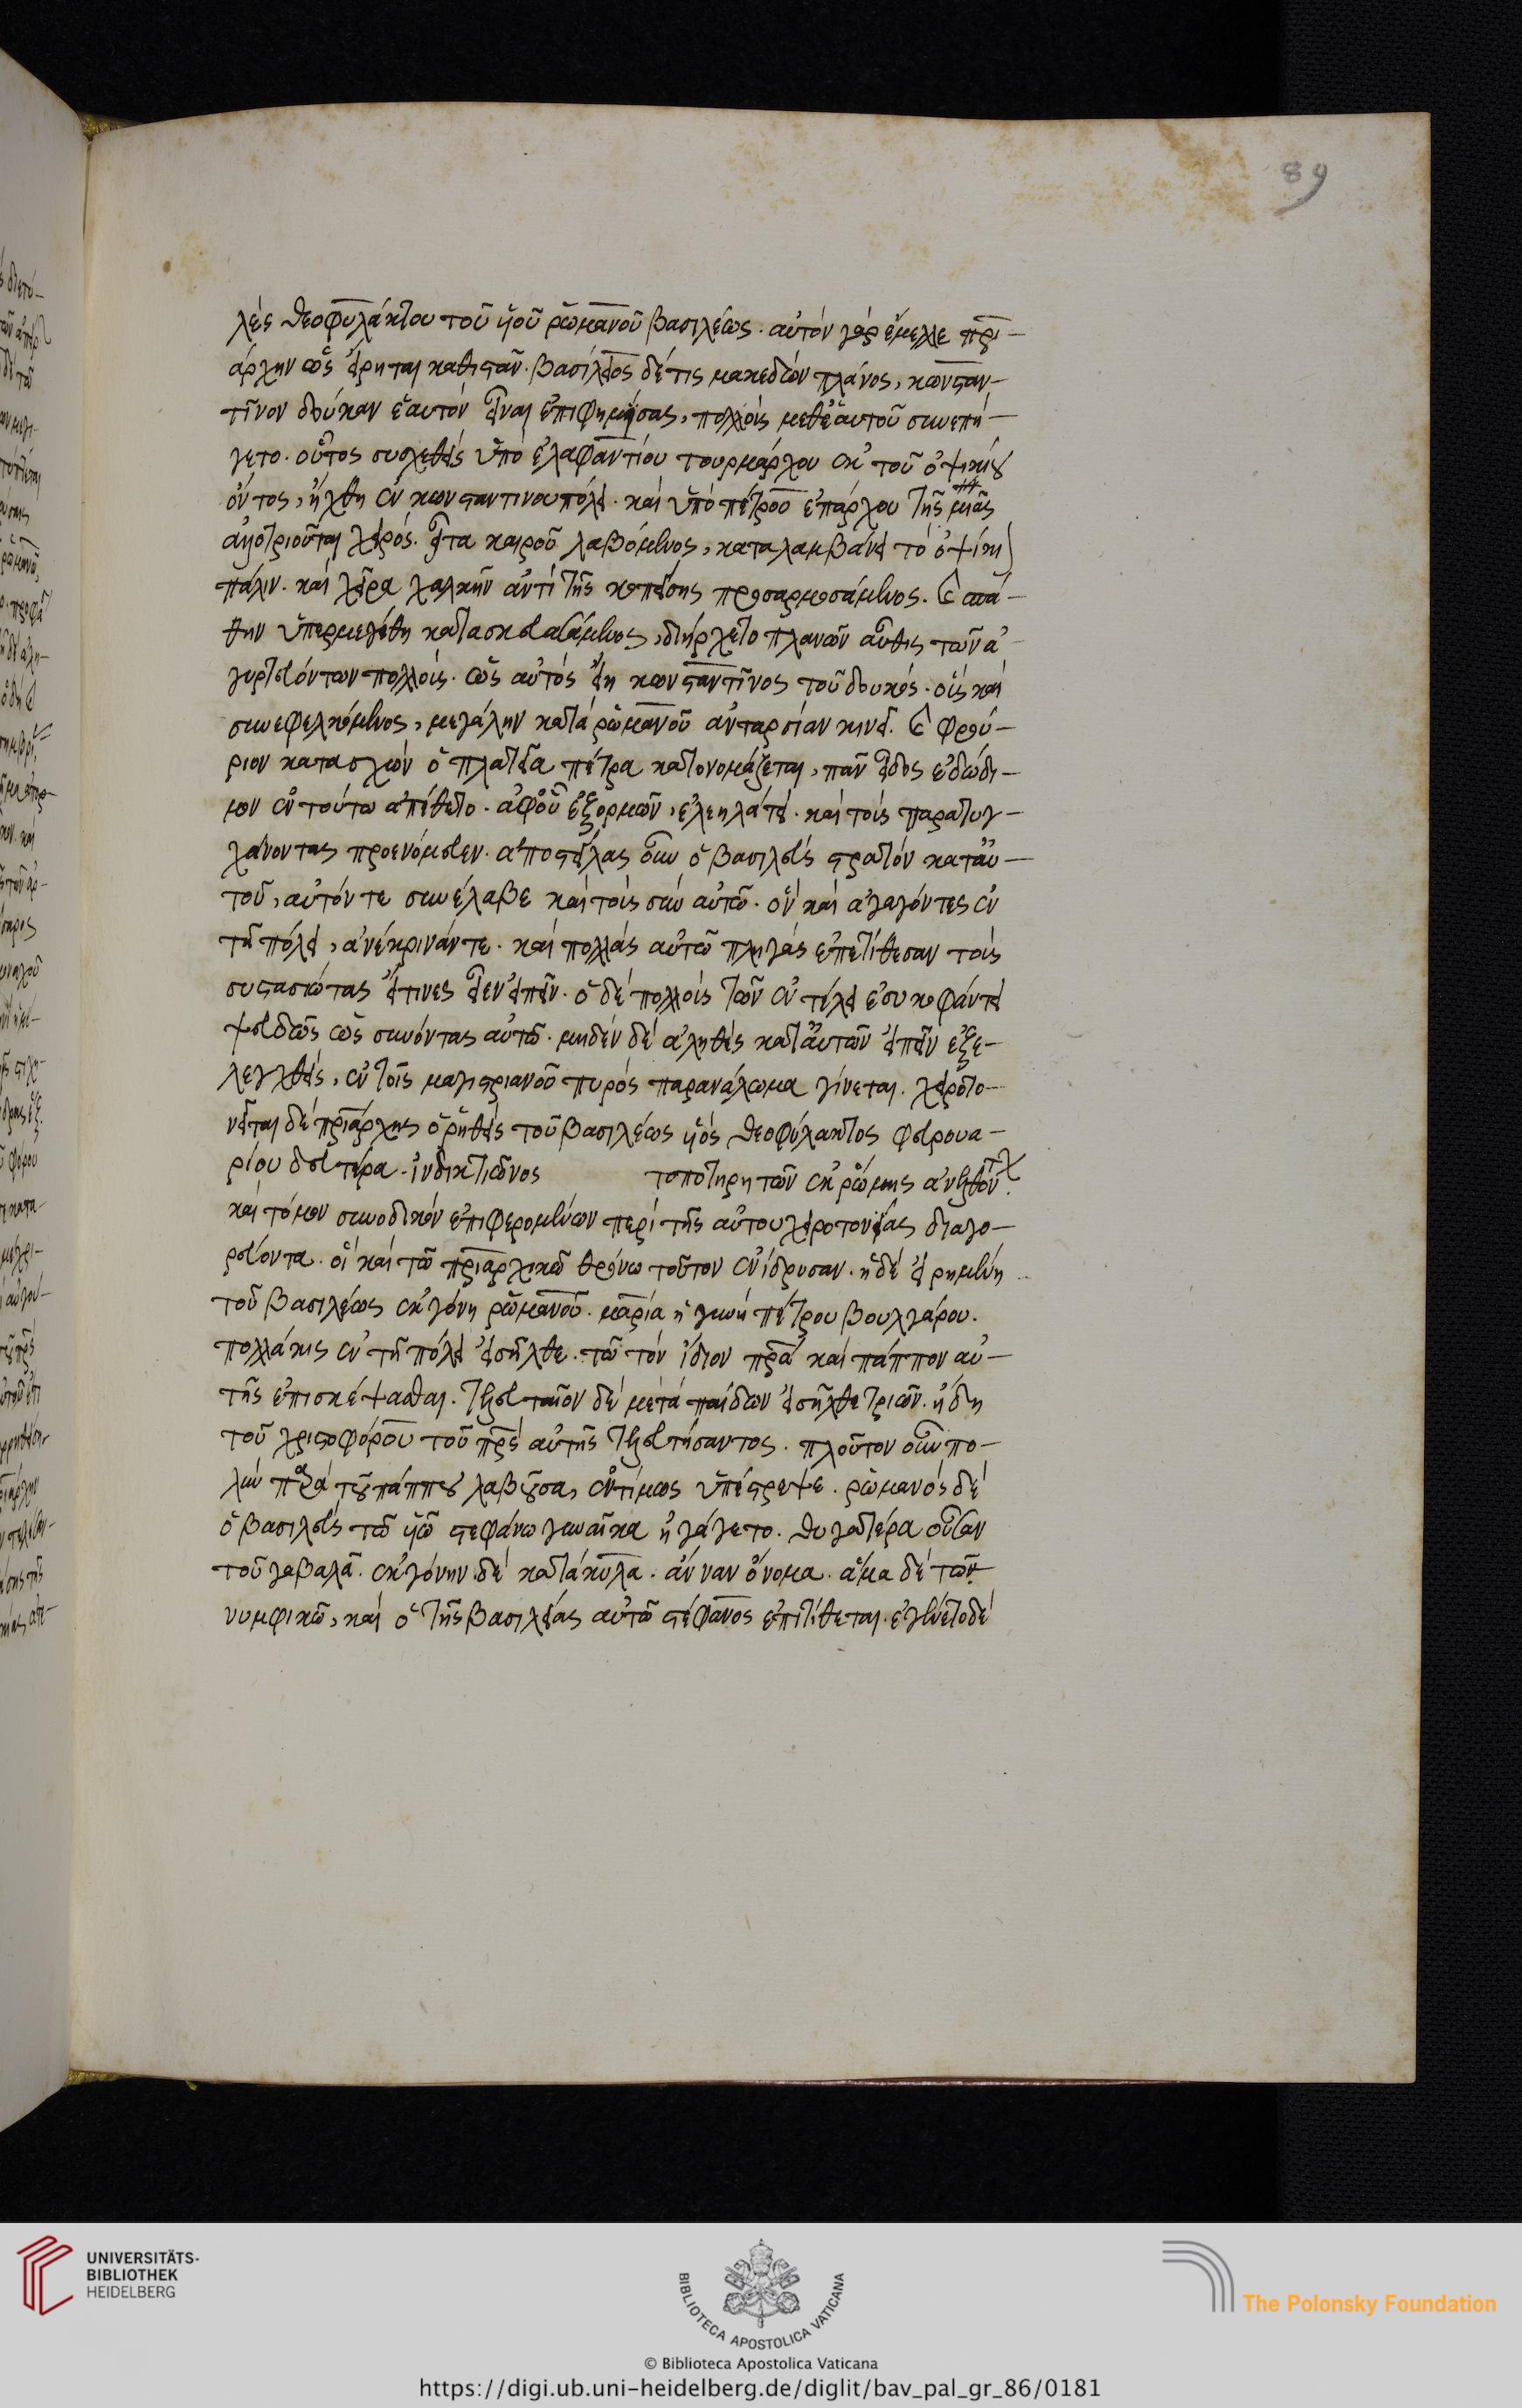 89
λὲς θεοφυλάκτου τοῦ υἱοῦ ῥωμανοῦ βασιλέως· αὐτὸν γὰρ ἔμελλε πρι-
άρχην ὡς εἴρηται καθιστᾶν· βασίλειος δέ τις μακεδὼν πλάνος, κωνσταν-
τῖνον δούκαν ἑαυτὸν εἶναι ἐπιφημίσας, πολλοὺς μεθ' ἑαυτοῦ συνεπή-
γετο· οὗτος συσχεθεὶς ὑπὸ ἐλαφαντίου τουρμάρχου ἐκ τοῦ ὀψικίου
ὄντος, ἤχθη ἐν κωνσταντινουπόλει· καὶ ὑπὸ πέτρου ἐπάρχου τῆς μιᾶς
ἀλλοτριοῦται χειρός· εἶτα καιροῦ λαβόμενος, καταλαμβάνει τὸ ὀψίκι
πάλιν· καὶ χεῖρα χαλκῆν ἀντὶ τῆς κοπείσης προσαρμοσάμενος· καὶ σπά-
θην ὑπερμεγέθη κατασκευασάμενος, διήρχετο πλανῶν αὖθις τῶν ἀ-
γυρτευόντων πολλοὺς· ὡς αὐτὸς εἴη κωνσταντῖνος τοῦ δουκός· οὓς καὶ
συνεφελκόμενος, μεγάλην κατὰ ῥωμανοῦ ἀνταρσίαν κινεῖ· καὶ φρού-
ριον κατασχὼν ὃ πλατεῖα πέτρα κατονομάζεται, πᾶν εἶδος ἐδώδι-
μον ἐν τούτω ἀπέθετο· ἀφ' οὗ ἐξορμῶν, ἐλεηλάτει· καὶ τοὺς παρατυγ-
χάνοντας προενόμευεν· ἀποστείλας οὖν ὁ βασιλεὺς στρατὸν κατ' αὐ-
τοῦ, αὐτόν τε συνέλαβε καὶ τοὺς σὺν αὐτῶ· ὃν καὶ ἀγαγόντες ἐν
τῆ πόλει, ἀνέκρινάν τε· καὶ πολλὰς αὐτῶ πληγὰς ἐπετίθεσαν τοὺς
συστασιώτας εἵτινες εἶεν εἰπεῖν· ὁ δὲ πολλοὺς τῶν ἐν τέλει ἐσυκοφάντει
ψευδῶς ὡς συνόντας αὐτῶ· μηδὲν δὲ ἀληθὲς κατ' αὐτῶν εἰπεῖν ἐξε-
λεγχθεὶς, ἐν τοῖς μαγιστριανοῦ πυρὸς παρανάλωμα γίνεται· χειροτο-
νεῖται δὲ πριάρχης ὁ ῥηθεὶς τοῦ βασιλέως υἱὸς θεοφύλακτος φευρουα-
ρίου δευτέρα· ἰνδικτιῶνος τοποτηρητῶν ἐκ ῥώμης ἀνελθόντ
καὶ τόμον συνοδικὸν ἐπιφερομένων περὶ τῆς αὐτοῦ χειροτονίας διαγο-
ρεύοντα· οἳ καὶ τῶ πριαρχικῶ θρόνω τοῦτον ἐνίδρυσαν· ἡ δὲ εἰρημένη
τοῦ βασιλέως ἐκγόνη ῥωμανοῦ· μαρία ἡ γυνὴ πέτρου βουλγάρου·
πολλάκις ἐν τῆ πόλει εἰσῆλθε· τῶ τὸν ἴδιον πρα καὶ πάππον αὐ-
τῆς ἐπισκέψασθαι· τελευταῖον δὲ μετὰ παίδων εἰσῆλθε τριῶν· ἤδη
τοῦ χριστοφόρου τοῦ πρς αὐτῆς τελευτήσαντος· πλοῦτον οὖν πο-
λὺν παρὰ τοῦ πάππου λαβοῦσα, ἐντίμως ὑπέστρεψε· ῥωμανὸς δὲ
ὁ βασιλεὺς τῶ υἱῶ στεφάνω γυναῖκα ἠγάγετο· θυγατέρα οὖσαν
τοῦ γαβαλᾶ· ἐκγόνην δὲ κατάκυλα· ἄνναν ὄνομα· ἅμα δὲ τῶ
νυμφικῶ, καὶ ὁ τῆς βασιλείας αὐτῶ στέφανος ἐπιτίθεται· ἐγένετο δὲ
UNIVERSITÄTS-
BIBLIOTHEK
HEIDELBERG
BIBLIOTECA APOSTOLICA VATICANA
The Polonsky Foundation
© Biblioteca Apostolica Vaticana
https://digi.ub.uni-heidelberg.de/diglit/bav_pal_gr_86/0181